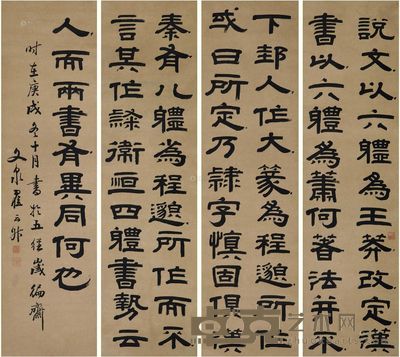 說文以六體為王莽改定漢
書以六體為蕭何著法并
下邽人作大篆為程邈所作
或曰所定乃隸字慎固俱漢
秦有八體為程邈所作而不
言其作隸衛恆四體書勢云
人而兩書有異同何也
時在庚戌冬十月書於五經歲徧齋
文泉翟云升